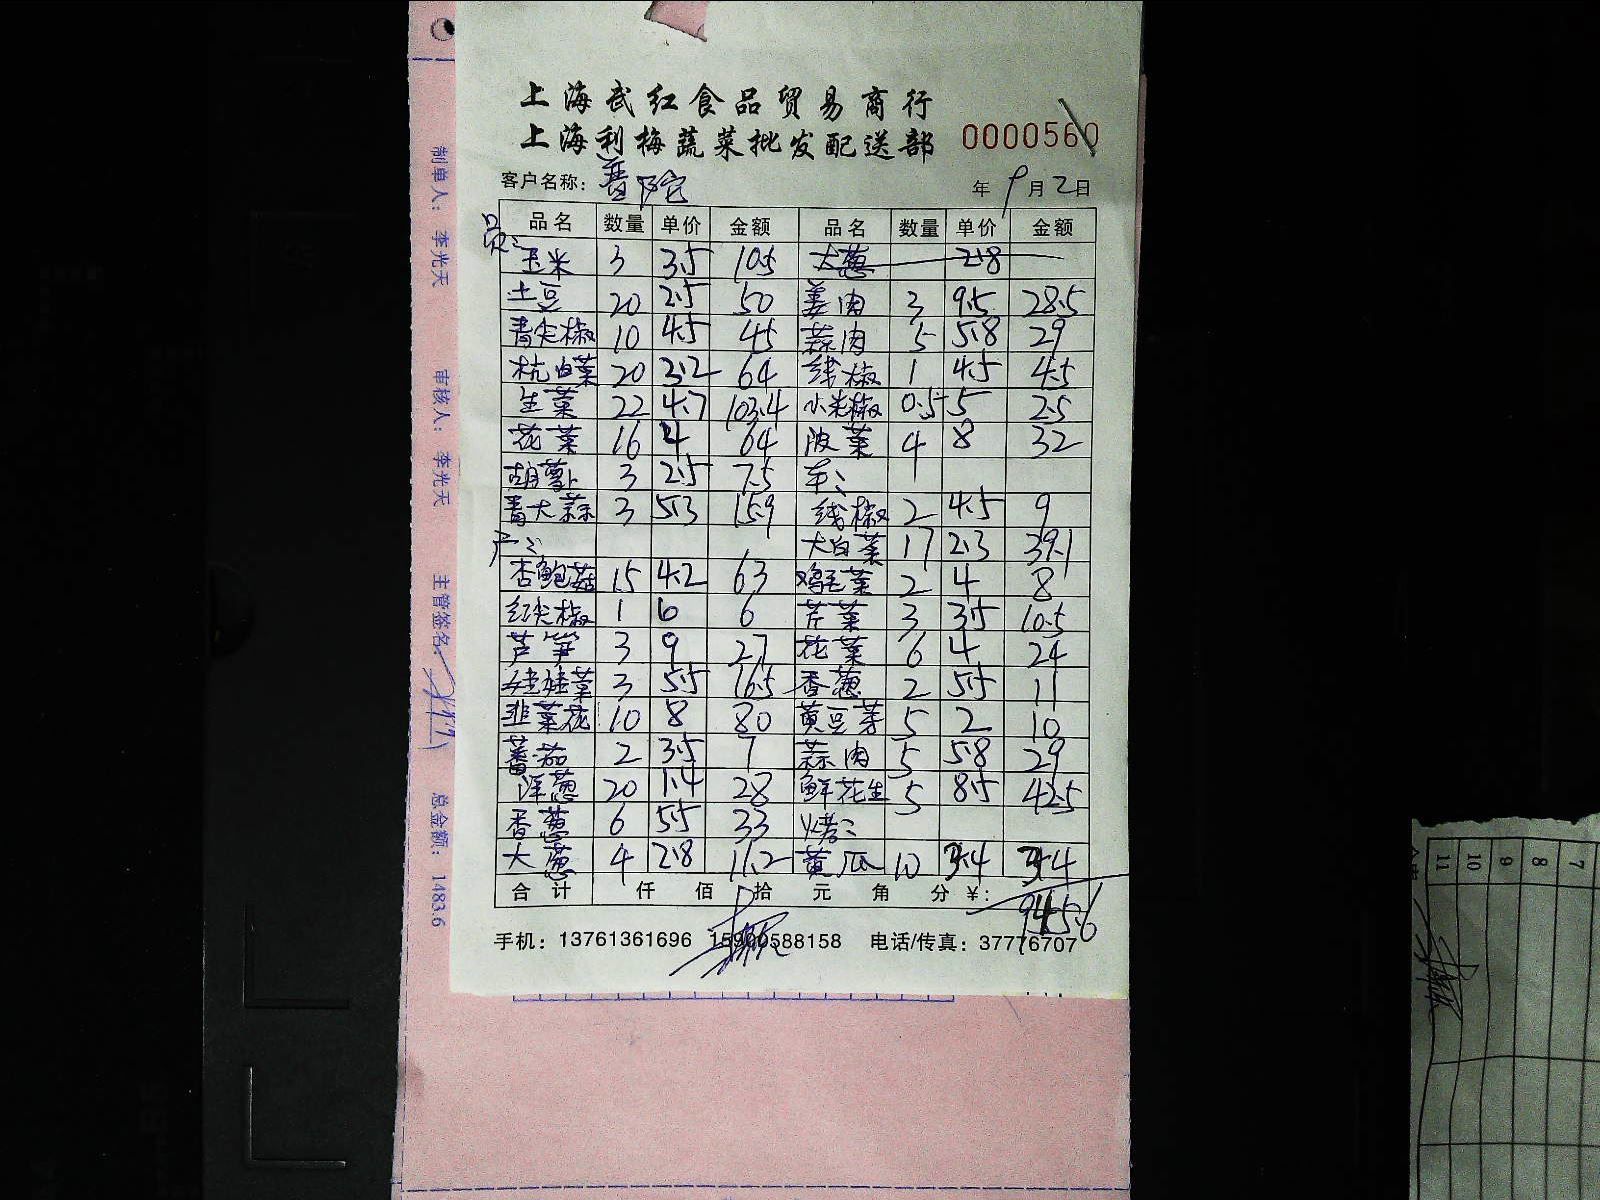 上海武红食品贸易商行
上海利梅蔬菜批发配送部 0000560
客户名称: 普陀 年 9月2日
品名 数量 单价 金额 品名 数量 单价 金额
玉米 3 3.5 10.5 大葱 2.8
土豆 20 2.5 50 姜肉 3 9.5 28.5
青尖椒 10 4.5 45 蒜肉 5 5.8 29
杭白菜 20 3.2 64 线椒 1 4.5 4.5
生菜 22 4.7 103.4 小米椒 0.5 5 2.5
花菜 16 4 64 波菜 4 8 32
胡萝卜 3 2.5 7.5 车:
青大蒜 3 5.3 15.9 线椒 2 4.5 9
产: 大白菜 17 2.3 39.1
杏鲍菇 15 4.2 63 鸡毛菜 2 4 8
红尖椒 1 6 6 芹菜 3 3.5 10.5
芦笋 3 9 27 花菜 6 4 24
娃娃菜 3 5.5 16.5 香葱 2 5.5 11
韭菜花 10 8 80 黄豆芽 5 2 10
蕃茄 2 3.5 7 蒜肉 5 5.8 29
洋葱 20 1.4 28 鲜花生 5 8.5 42.5
香葱 6 5.5 33 烤:
大葱 4 2.8 11.2 黄瓜 10 3.4 34
合计 仟 佰 拾 元 角 分 ¥: 945.6
手机: 13761361696 15900588158 电话/传真: 37776707
制单人: 李光天 审核人: 李光天 主管签名: 总金额: 1483.6
7
8
9
10
11